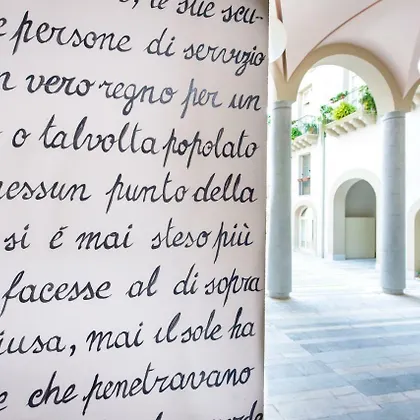 , le sue scu-
e persone di servizio
n vero regno per un
o talvolta popolato
nessun punto della
si é mai steso più
facesse al di sopra
iusa, mai il sole ha
e che penetravano